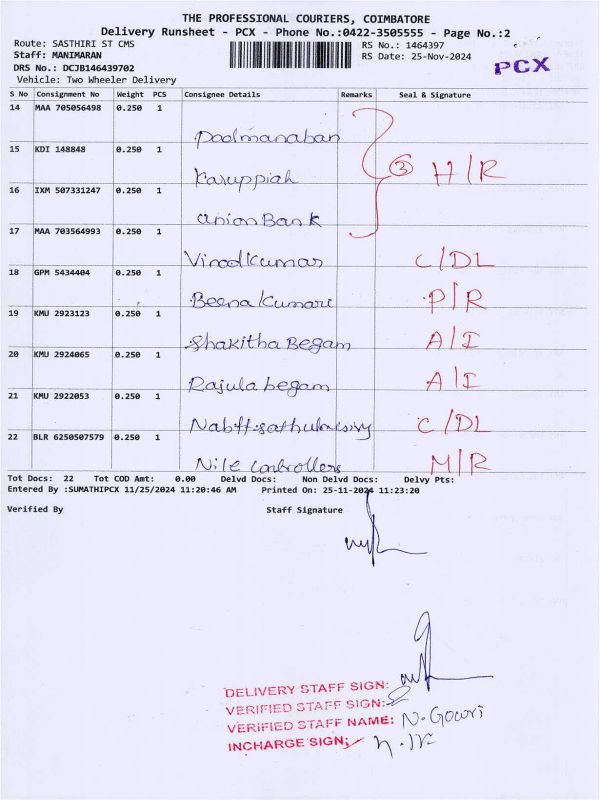 THE PROFESSIONAL COURIERS, COIMBATORE
Delivery Runsheet - PCX - Phone No.:0422-3505555 - Page No.:2
Route: SASTHIRI ST CMS RS No.: 1464397
Staff: MANIMARAN RS Date: 25-Nov-2024
DRS No.: DCJB146439702 PCX
Vehicle: Two Wheeler Delivery
S No Consignment No Weight PCS Consignee Details Remarks Seal & Signature
14 MAA 705056498 0.250 1
Padmanaban
15 KDI 148848 0.250 1
Karuppiah ③ H/R
16 IXM 507331247 0.250 1
Union Bank
17 MAA 703564993 0.250 1
Vinodkumar C/DL
18 GPM 5434404 0.250 1
Beena Kumari P/R
19 KMU 2923123 0.250 1
Shakitha Begam A/I
20 KMU 2924065 0.250 1
Rajula begam A/I
21 KMU 2922053 0.250 1
C/DL
22 BLR 6250507579 0.250 1
Nile Controllers M/R
Tot Docs: 22 Tot COD Amt: 0.00 Delvd Docs: Non Delvd Docs: Delvy Pts:
Entered By :SUMATHIPCX 11/25/2024 11:20:46 AM Printed On: 25-11-2024 11:23:20
Verified By Staff Signature
DELIVERY STAFF SIGN:
VERIFIED STAFF SIGN:
VERIFIED STAFF NAME: N. Gowri
INCHARGE SIGN: